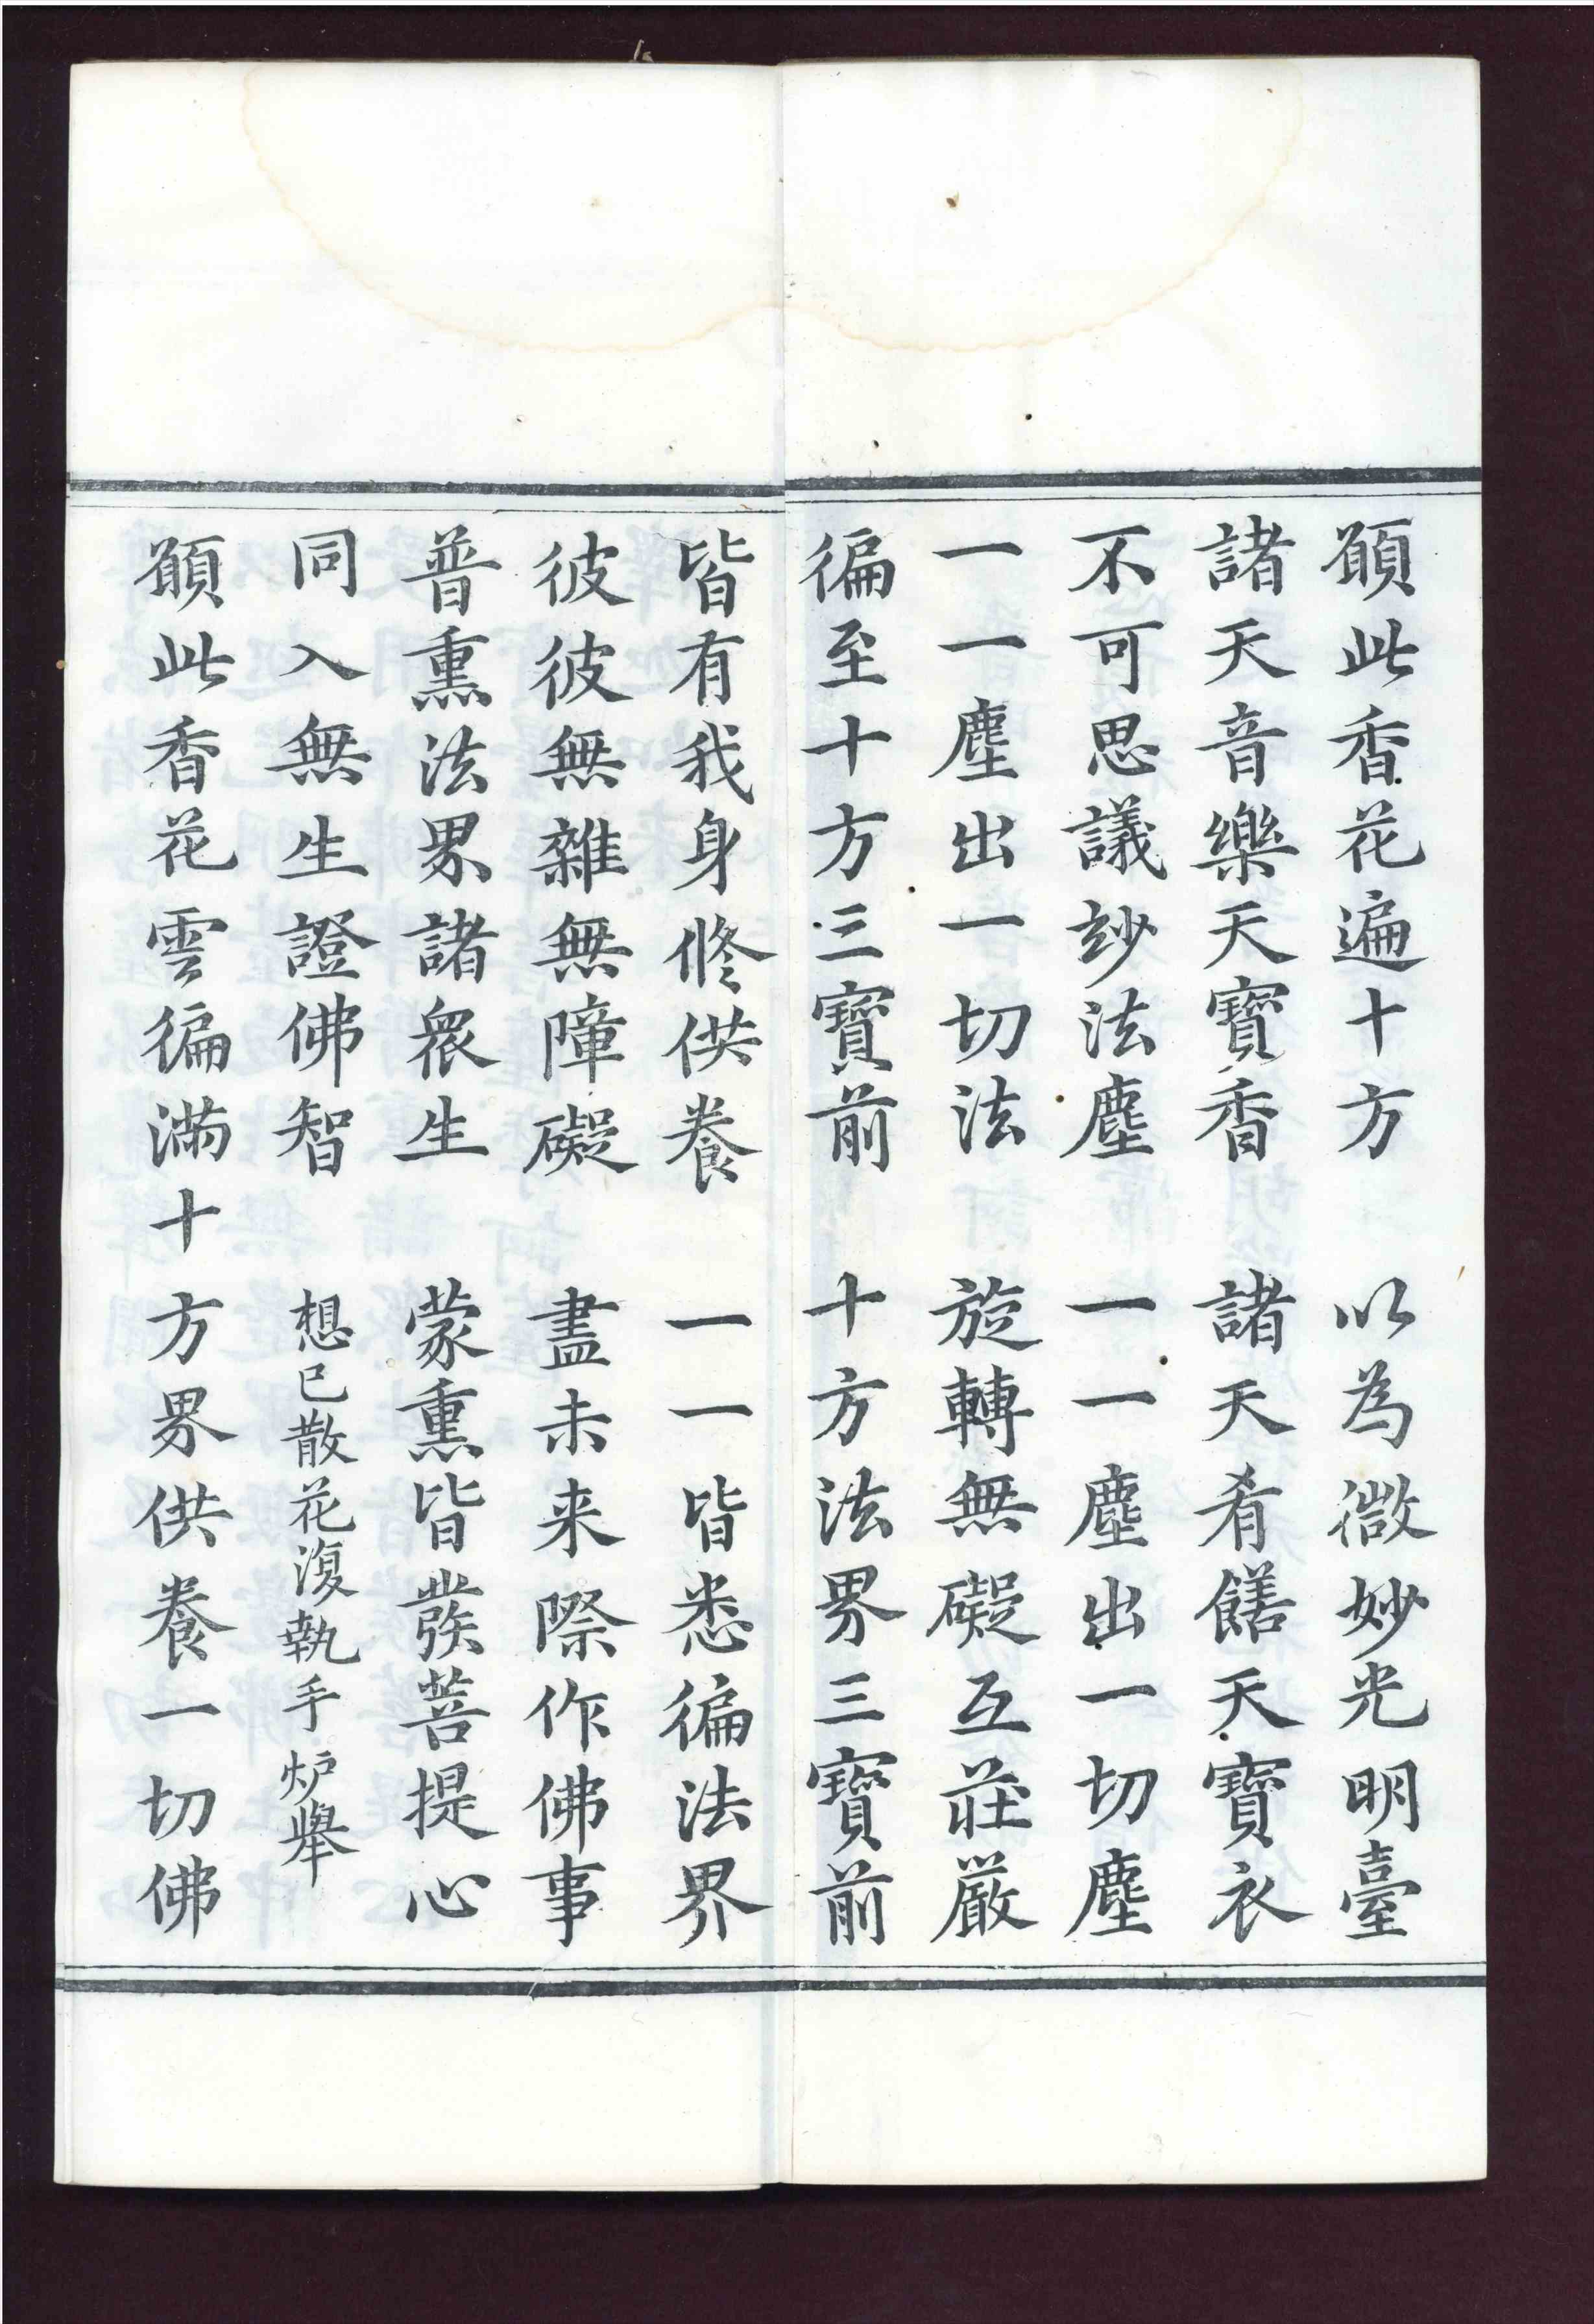 願此香花遍十方　以為微妙光明臺
諸天音樂天寶香　諸天肴饍天寶衣
不可思議玅法塵　一一塵出一切塵
一一塵出一切法　旋轉無礙互莊嚴
徧至十方三寶前　十方法界三寶前
皆有我身修供養　一一皆悉徧法界
彼彼無雜無障礙　盡未来際作佛事
普熏法界諸眾生　蒙熏皆發菩提心
同入無生證佛智　想已散花復執手炉舉
願此香花雲徧滿十方界供養一切佛